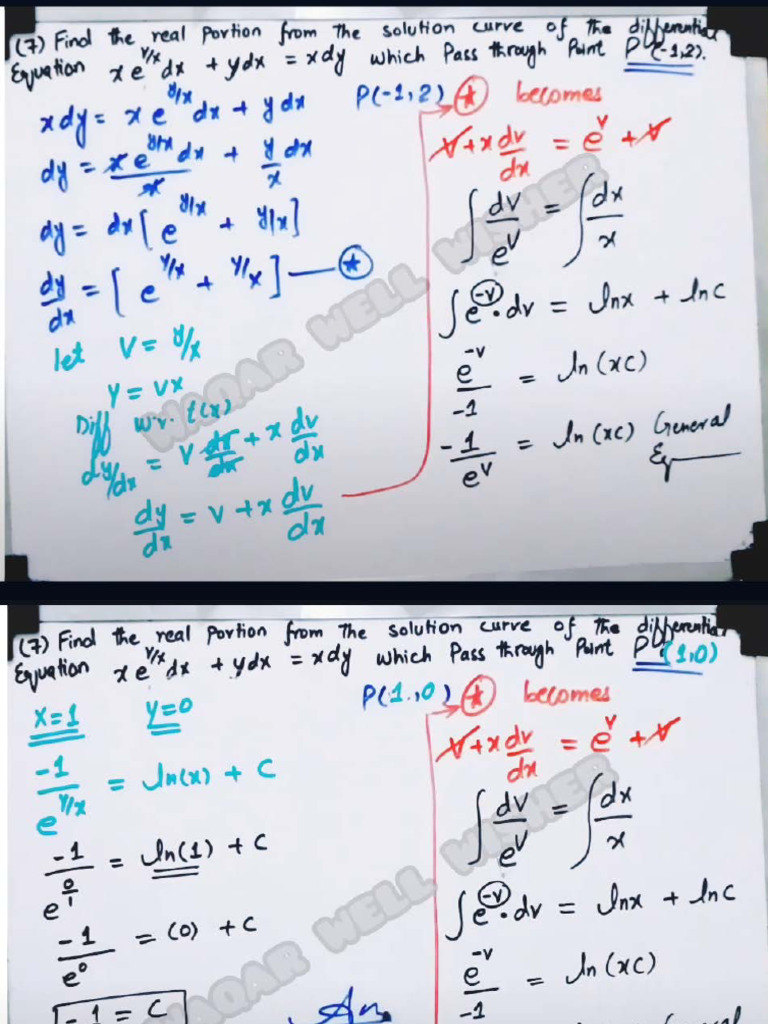 (7) Find the real portion from the solution curve of the differential
Equation x e^{y/x} dx + y dx = x dy which Pass through Point P(-1,2).
x dy = x e^{y/x} dx + y dx
dy = x e^{y/x} dx / x + y/x dx
dy = dx [ e^{y/x} + y/x ]
dy/dx = [ e^{y/x} + y/x ] — ⊛
let V = y/x
y = vx
Diff w.r.t (x)
dy/dx = v dx/dx + x dv/dx
dy/dx = v + x dv/dx
P(-1,2) ⊛ becomes
v + x dv/dx = e^v + v
∫ dv/e^v = ∫ dx/x
∫ e^{-v} · dv = lnx + lnc
e^{-v}/-1 = ln(xc)
-1/e^v = ln(xc) General
Eq
WAQAR WELL WISHER
(7) Find the real portion from the solution curve of the differential
Equation x e^{y/x} dx + y dx = x dy which Pass through Point P(1,0)
x=1 y=0
-1/e^{y/x} = ln(x) + c
-1/e^{0/1} = ln(1) + c
-1/e^0 = (0) + c
-1 = c
An
P(1.,0) ⊛ becomes
v + x dv/dx = e^v + v
∫ dv/e^v = ∫ dx/x
∫ e^{-v} · dv = lnx + lnc
e^{-v}/-1 = ln(xc)
WAQAR WELL WISHER